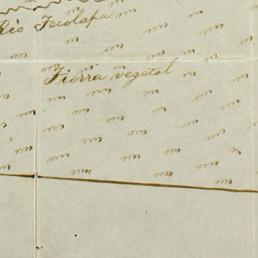 Rio Tecolapa
Tierra vegetal